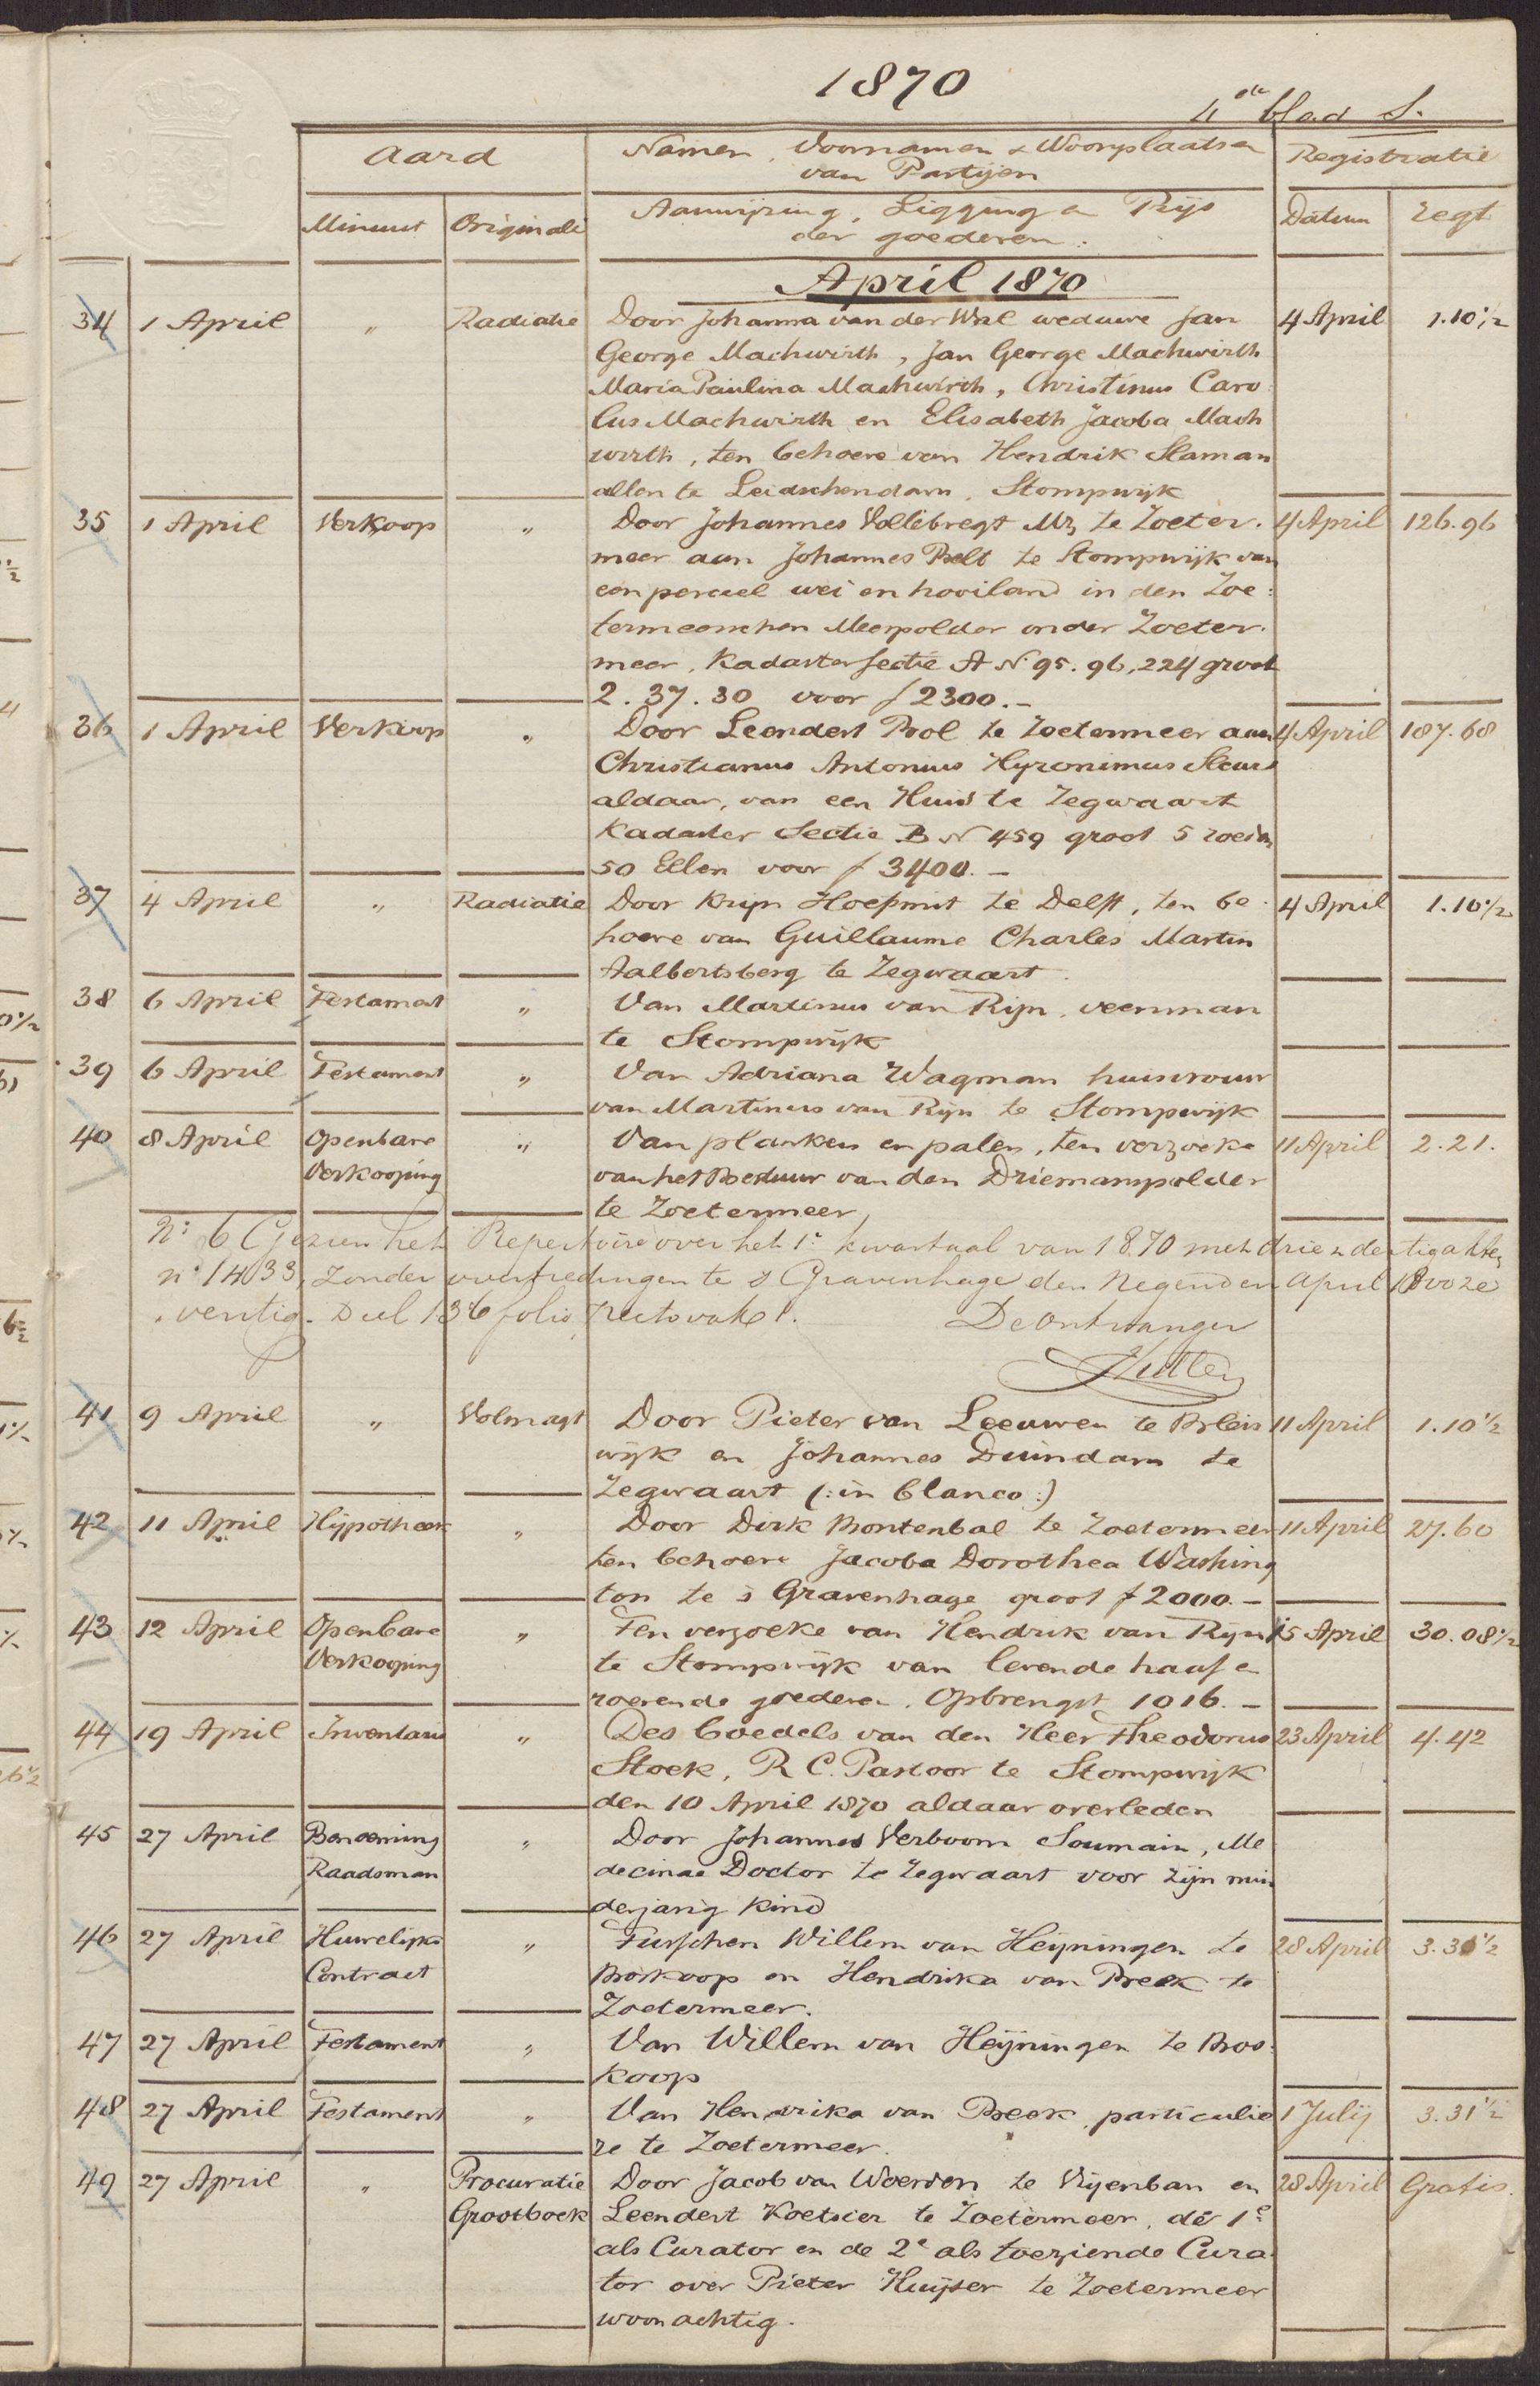 1870
4de blad S.
Aard
Namen, Voornamen & Woonplaatsen van Partijen
Registratie
Minuut
Originali
Aanwijzing, Ligging en Prijs der goederen.
Datum
regt
April 1870
34 1 April " Radiatie Door Johanna van der Wal weduwe Jan 4 April 1.10½
George Machwirth, Jan George Machwirth
Maria Paulina Machwirth, Christinus Caro:
lus Machwirth en Elisabeth Jacoba Mach
wirth, ten behoeve van Hendrik Slaman
allen te Leidschendam, Stompwijk
35 1 April Verkoop " Door Johannes Vollebregt Mz te Zoeter: 4 April 126.96
meer aan Johannes Pelt te Stompwijk van
een perceel wei en hooiland in den Zoe:
termeerschen Meerpolder onder Zoeter:
meer, Kadaster sectie A No 95. 96, 224 groot
2.37.30 voor f 2300.-
36 1 April Verkoop " Door Leendert Pool te Zoetermeer aan 4 April 187.68
Christianus Antonius Hyronimus
aldaar, van een Huis te Zegwaart
Kadaster Sectie B N 459 groot 5 roeden
50 Ellen voor f 3400.-
37 4 April " Radiatie Door Krijn Hoefsmit te Delft, ten be: 4 April 1.10½
hoeve van Guillaume Charles Martin
Aalbertsberg te Zegwaart.
38 6 April Testament " Van Martinus van Rijn, veenman
te Stompwijk
39 6 April Testament " Van Adriana Wagman huisvrouw
van Martinus van Rijn te Stompwijk
40 8 April Openbare " Van planken en palen, ten verzoeke 11 April 2.21.
Verkooping van het Bestuur van den Driemanspolder
te Zoetermeer,
No 6 Gezien het Repertoire over het 1e kwartaal van 1870 met drie en dertig akten
no 1 à 33, zonder overtredingen te 's Gravenhage den negenden April 18 voze
ventig. Deel 136 folio recto vak 1. De Ontvanger
41 9 April " Volmagt Door Pieter van Leeuwen te Bleis 11 April 1.10½
wijk en Johannes Duindam te
Zegwaart (: in blanco :)
42 11 April Hypotheek " Door Dirk Bontenbal te Zoetermeer 11 April 27.60
ten behoeve Jacoba Dorothea Washing
ton te s Gravenhage groot f 2000.-
43 12 April Openbare " Ten verzoeke van Hendrik van Rijn 15 April 30.08½
Verkooping te Stompwijk van levende haaf en
roerende goederen. Opbrengst 1016.-
44 19 April Inventaris " Des boedels van den Heer Theodorus 23 April 4.42
Stoek, R C. Pastoor te Stompwijk
den 10 April 1870 aldaar overleden
45 27 April Benoeming " Door Johannes Verboom Soumain, Me
Raadsman decinae Doctor te Zegwaart voor zijn min
derjarig kind
46 27 April Huwelijks " Tusschen Willem van Heijningen te 28 April 3.31½
Contract Boskoop en Hendrika van Beek te
Zoetermeer.
47 27 April Testament " Van Willem van Heijningen te Bos:
koop
48 27 April Testament " Van Hendrika van Beek, particulie 1 Julij 3.31½
re te Zoetermeer.
49 27 April " Procuratie Door Jacob van Woerden te Vrijenban en 28 April Gratis.
Grootboek Leendert Koetsier te Zoetermeer, de 1e
als Curator en de 2e als toeziende Cura:
tor over Pieter Huijser te Zoetermeer
woonachtig.